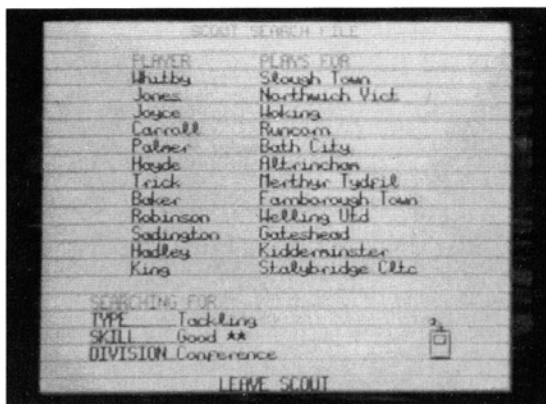 SCOUT SEARCH FILE
PLAYER PLAYS FOR
Whitby Slough Town
Jones Northwich Vict
Joyce Woking
Carroll Runcorn
Palmer Bath City
Hayde Altrincham
Trick Merthyr Tydfil
Baker Farnborough Town
Robinson Welling Utd
Sadington Gateshead
Hadley Kidderminster
King Stalybridge Cltc
SEARCHING FOR
TYPE Tackling
SKILL Good **
DIVISION Conference
LEAVE SCOUT